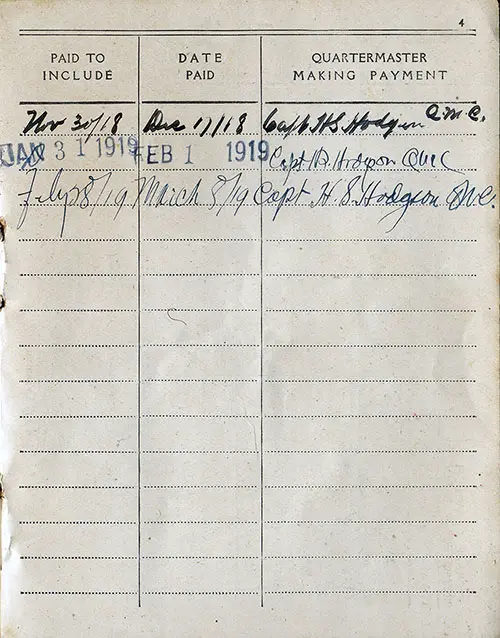 4
PAID TO INCLUDE DATE PAID QUARTERMASTER MAKING PAYMENT
Nov 30/18 Dec 17/18 Capt HS Hodgson Q.M.C.
JAN 31 1919 FEB 1 1919 Capt HS Hodgson QMC
28/19 March 8/19 Capt H. S. Hodgson QMC.